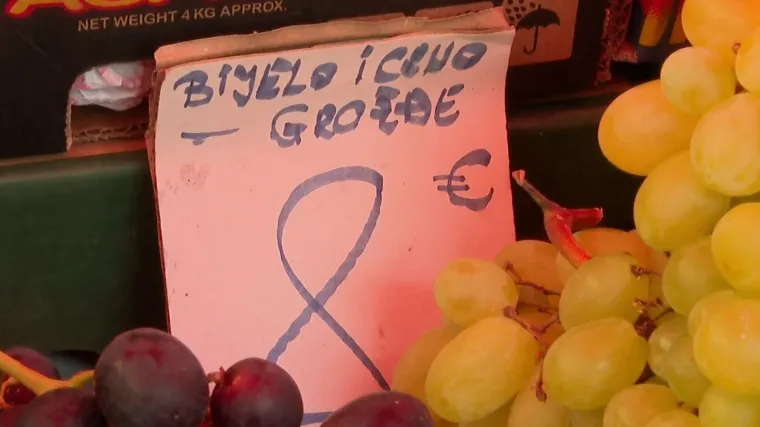 NET WEIGHT 4 KG APPROX.
BIJELO I CRNO
— GROŽĐE
€
8